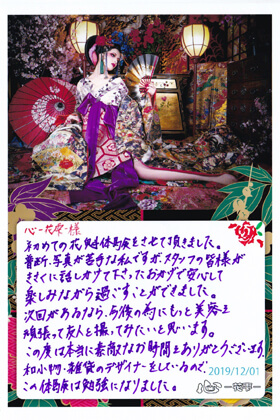 心-花雫-様
初めての花魁体験をさせて頂きました。
普段、写真が苦手な私ですが、スタッフの皆様が
きさくに話しかけて下さったおかげで安心して
楽しみながら過ごすことができました。
次回があるなら、今後の為にもっと美容を
頑張って友人と撮ってみたいと思います。
この度は本当に素敵なお時間をありがとうございます。
和小物・雑貨のデザイナーをしているので
この体験は勉強になりました。
2019/12/01
心 -花雫-